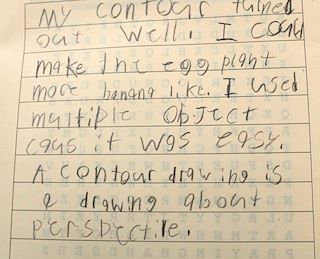 My contour turned
out well. I coud
make the egg plant
more banana like. I used
multiple object
caus it was easy.
A contour drawing is
a drawing about
perspectile.